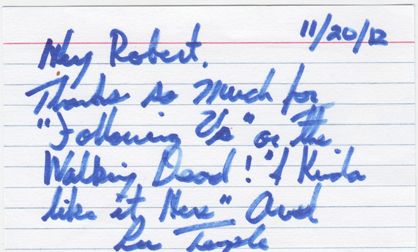 11/20/12
Hey Robert,
Thanks so much for
"Following Us" on The
Walking Dead! "I Kinda
like it Here" And
Lew Temple